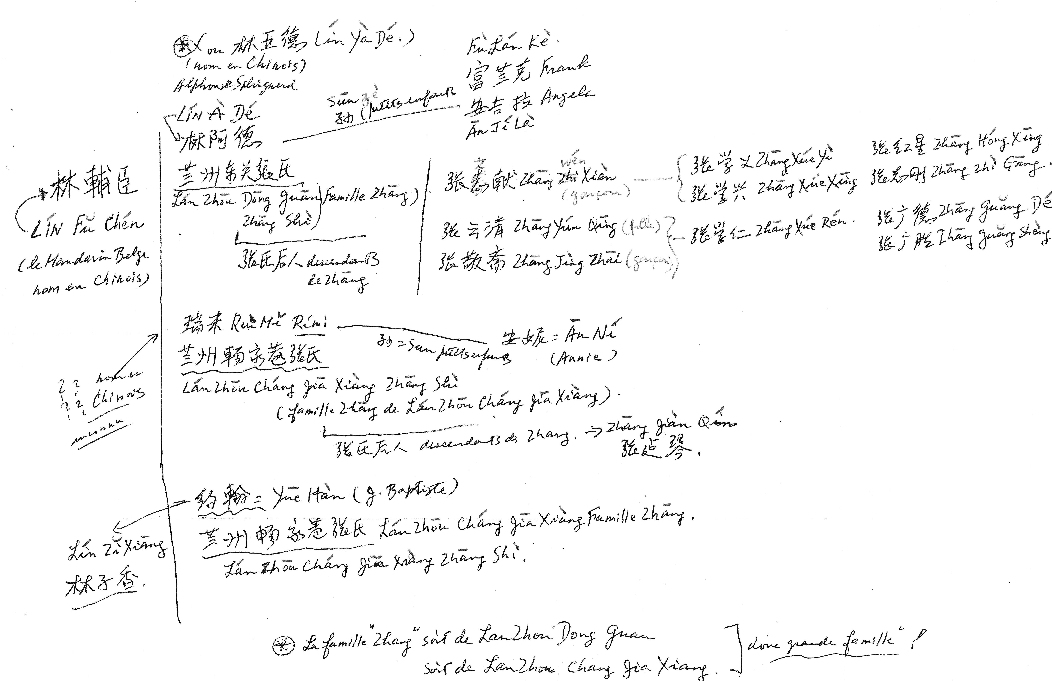 林亚德 Lín Yà Dé.)
(nom en Chinois)
Alphonse Splingaerd
Lín À Dé
林阿德
Sūn
孙 (petits enfants)
Fù Lán Kè.
富兰克 Frank
安吉拉 Angela
Ān Jí Là
林輔臣
LÍN Fǔ Chén
(le Mandarin Belge
nom en Chinois)
兰州东关张氏
Lán Zhōu Dōng Guān (Famille Zhāng)
Zhāng Shì
张氏后人 descendants
de Zhāng
Zhāng Zhì Xiàn
wén
(garçon)
张云清 Zhāng Yún Qīng (fille)
张敬斋 Zhāng Jìng Zhāi (garçon)
张学义 Zhāng Xué Yì
张学兴 Zhāng Xué Xīng
张学仁 Zhāng Xué Rén.
张红星 Zhāng Hóng Xīng
张志刚 Zhāng Zhì Gāng.
张广德 Zhāng Guǎng Dé
张广胜 Zhāng Guǎng Shèng
瑞米 Ruì Mǐ Rémi
孙 = Sūn petits enfants
安妮 = Ān Nī
(Annie)
兰州畅家巷张氏
Lán Zhōu Chàng Jiā Xiàng Zhāng Shì
(famille Zhāng de Lán Zhōu Chàng Jiā Xiàng).
张氏后人 descendants de Zhang. → Zhāng Jiàn Qín
张建琴.
? ? nom en
? ? Chinois
inconnu
约翰 = Yuē Hàn (J. Baptiste)
兰州畅家巷张氏 Lán Zhōu Chàng Jiā Xiàng Famille Zhāng.
Lán Zhōu Chàng Jiā Xiàng Zhāng Shì.
Lín Zǐ Xiāng
林子香.
La famille "Zhang" soit de LanZhou Dong Guan
soit de LanZhou Chang Jia Xiang.
donc grande famille" !